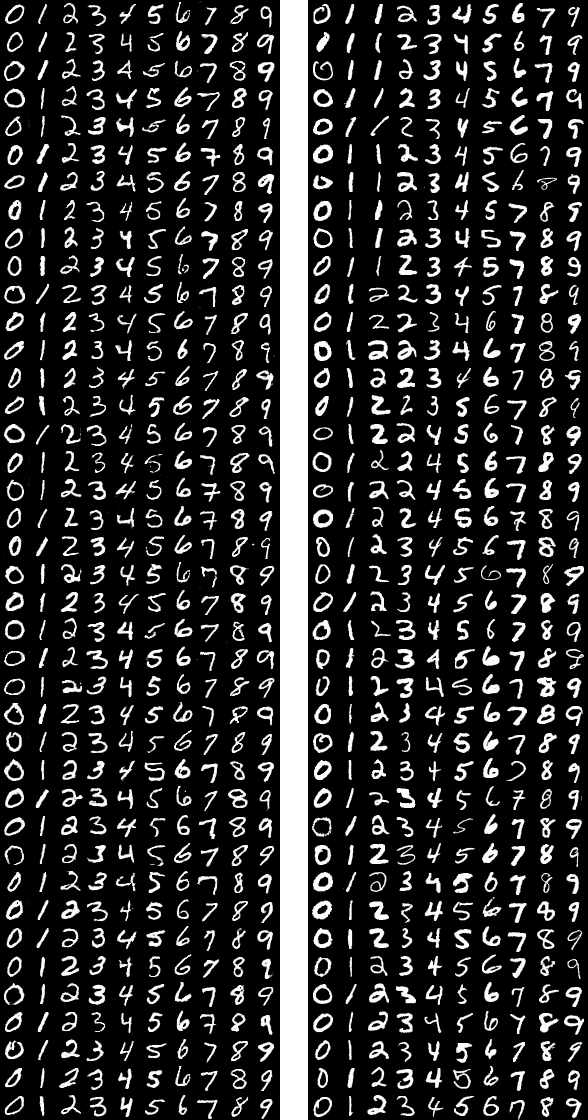 0 1 2 3 4 5 6 7 8 9
0 1 2 3 4 5 6 7 8 9
0 1 2 3 4 5 6 7 8 9
0 1 2 3 4 5 6 7 8 9
0 1 2 3 4 5 6 7 8 9
0 1 2 3 4 5 6 7 8 9
0 1 2 3 4 5 6 7 8 9
0 1 2 3 4 5 6 7 8 9
0 1 2 3 4 5 6 7 8 9
0 1 2 3 4 5 6 7 8 9
0 1 2 3 4 5 6 7 8 9
0 1 2 3 4 5 6 7 8 9
0 1 2 3 4 5 6 7 8 9
0 1 2 3 4 5 6 7 8 9
0 1 2 3 4 5 6 7 8 9
0 1 2 3 4 5 6 7 8 9
0 1 2 3 4 5 6 7 8 9
0 1 2 3 4 5 6 7 8 9
0 1 2 3 4 5 6 7 8 9
0 1 2 3 4 5 6 7 8 9
0 1 2 3 4 5 6 7 8 9
0 1 2 3 4 5 6 7 8 9
0 1 2 3 4 5 6 7 8 9
0 1 2 3 4 5 6 7 8 9
0 1 2 3 4 5 6 7 8 9
0 1 2 3 4 5 6 7 8 9
0 1 2 3 4 5 6 7 8 9
0 1 2 3 4 5 6 7 8 9
0 1 2 3 4 5 6 7 8 9
0 1 2 3 4 5 6 7 8 9
0 1 2 3 4 5 6 7 8 9
0 1 2 3 4 5 6 7 8 9
0 1 2 3 4 5 6 7 8 9
0 1 2 3 4 5 6 7 8 9
0 1 2 3 4 5 6 7 8 9
0 1 2 3 4 5 6 7 8 9
0 1 2 3 4 5 6 7 8 9
0 1 2 3 4 5 6 7 8 9
0 1 2 3 4 5 6 7 8 9
0 1 2 3 4 5 6 7 8 9
0 1 1 2 3 4 5 6 7 9
1 1 2 3 4 5 6 7 9
0 1 1 2 3 4 5 6 7 9
0 1 1 2 3 4 5 6 7 9
0 1 1 2 3 4 5 6 7
0 1 1 2 3 4 5 6 7 9
0 1 1 2 3 4 5 6 8 9
0 1 1 2 3 4 5 7 8 9
0 1 1 2 3 4 5 7 8 9
0 1 1 2 3 4 5 7 8 9
0 1 2 2 3 4 5 7 8 9
0 1 2 2 3 4 6 7 8 9
0 1 2 2 3 4 6 7 8 9
0 1 2 2 3 4 6 7 8
0 1 2 2 3 5 6 7 8 9
0 1 2 2 4 5 6 7 8 9
0 1 2 2 4 5 6 7 8 9
0 1 2 2 4 5 6 7 8 9
0 1 2 2 4 5 6 7 8 9
0 1 2 3 4 5 6 7 8 9
0 1 2 3 4 5 6 7 8 9
0 1 2 3 4 5 6 7 8 9
0 1 2 3 4 5 6 7 8 9
0 1 2 3 4 5 6 7 8
0 1 2 3 4 5 6 7 8 9
0 1 2 3 4 5 6 7 8 9
0 1 2 3 4 5 6 7 8 9
0 1 2 3 4 5 6 8 9
0 1 2 3 4 5 6 7 8 9
0 1 2 3 4 5 6 7 8 9
0 1 2 3 4 5 6 7 8 9
0 1 2 3 4 5 6 7 8 9
0 1 2 3 4 5 6 7 8 9
0 1 2 3 4 5 6 7 8 9
0 1 2 3 4 5 6 7 8 9
0 1 2 3 4 5 6 7 8 9
0 1 2 3 4 5 6 7 8 9
0 1 2 3 4 5 6 7 8 9
0 1 2 3 4 5 6 7 8 9
0 1 2 3 4 5 6 7 8 9